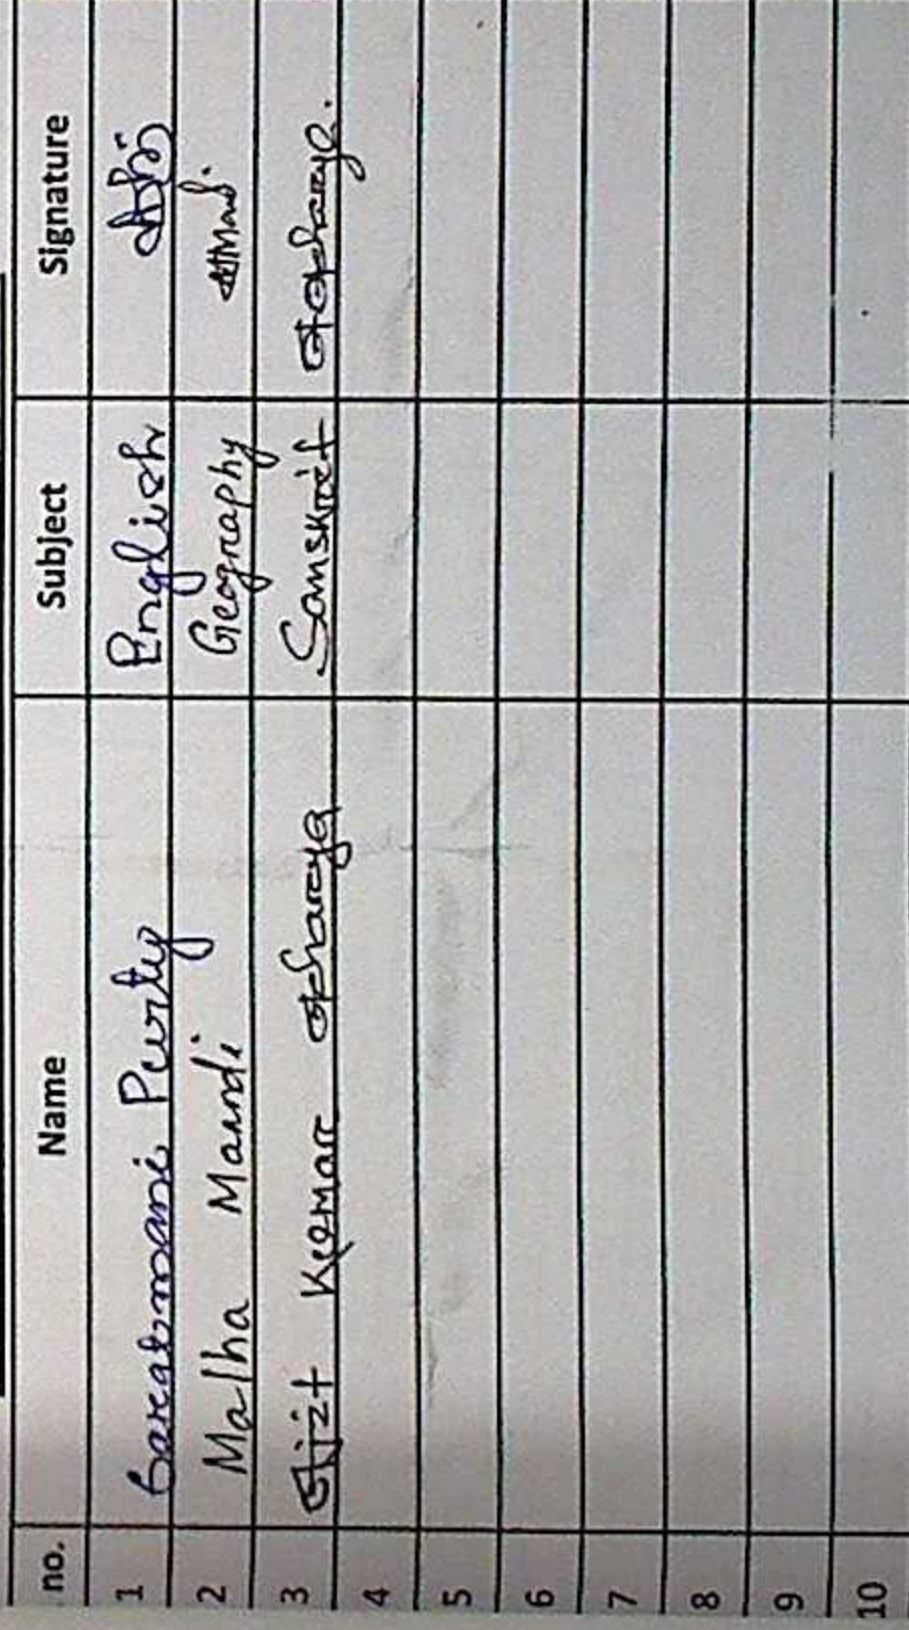 no. Name Subject Signature
1 Purty English
2 Malha Mandi Geography
3 Ajit Kumar Acharya Sanskrit Acharya.
4
5
6
7
8
9
10